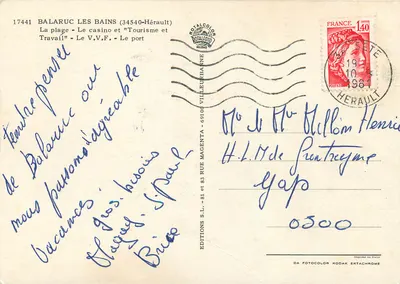 17441 BALARUC LES BAINS (34540-Hérault)
La plage - Le casino et "Tourisme et
Travail" - Le V.V.F. - Le port
tendre pensée
de Balaruc où
nous passons d'agréable
vacances
gros bisous
J. Paul
Brice
EDITIONS S.L. - 81 et 83 RUE MAGENTA - 69100 VILLEURBANNE
FRANCE
1,40
SETE
19
10
HERAULT
Mr & Mme Millon Henri
H.L.M de
Gap
0500
GM FOTOCOLOR KODAK EKTACHROME